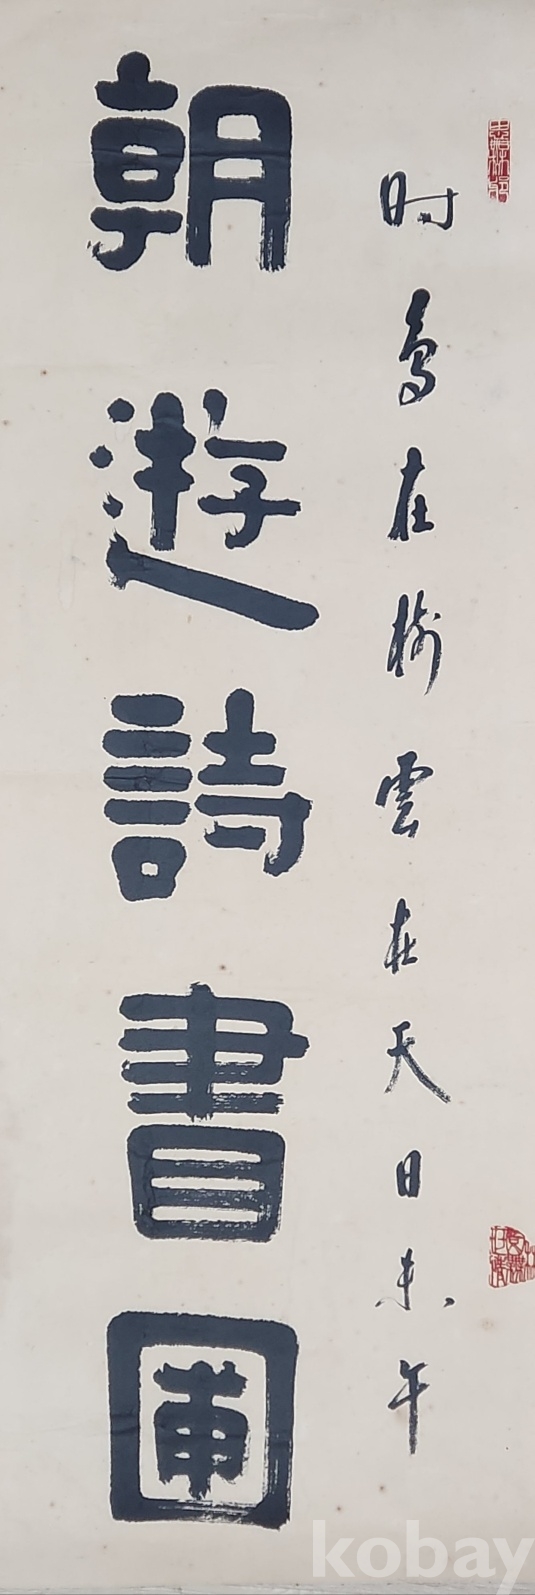 时鳥在樹雲在天日未午
朝遊詩書圃
kobay